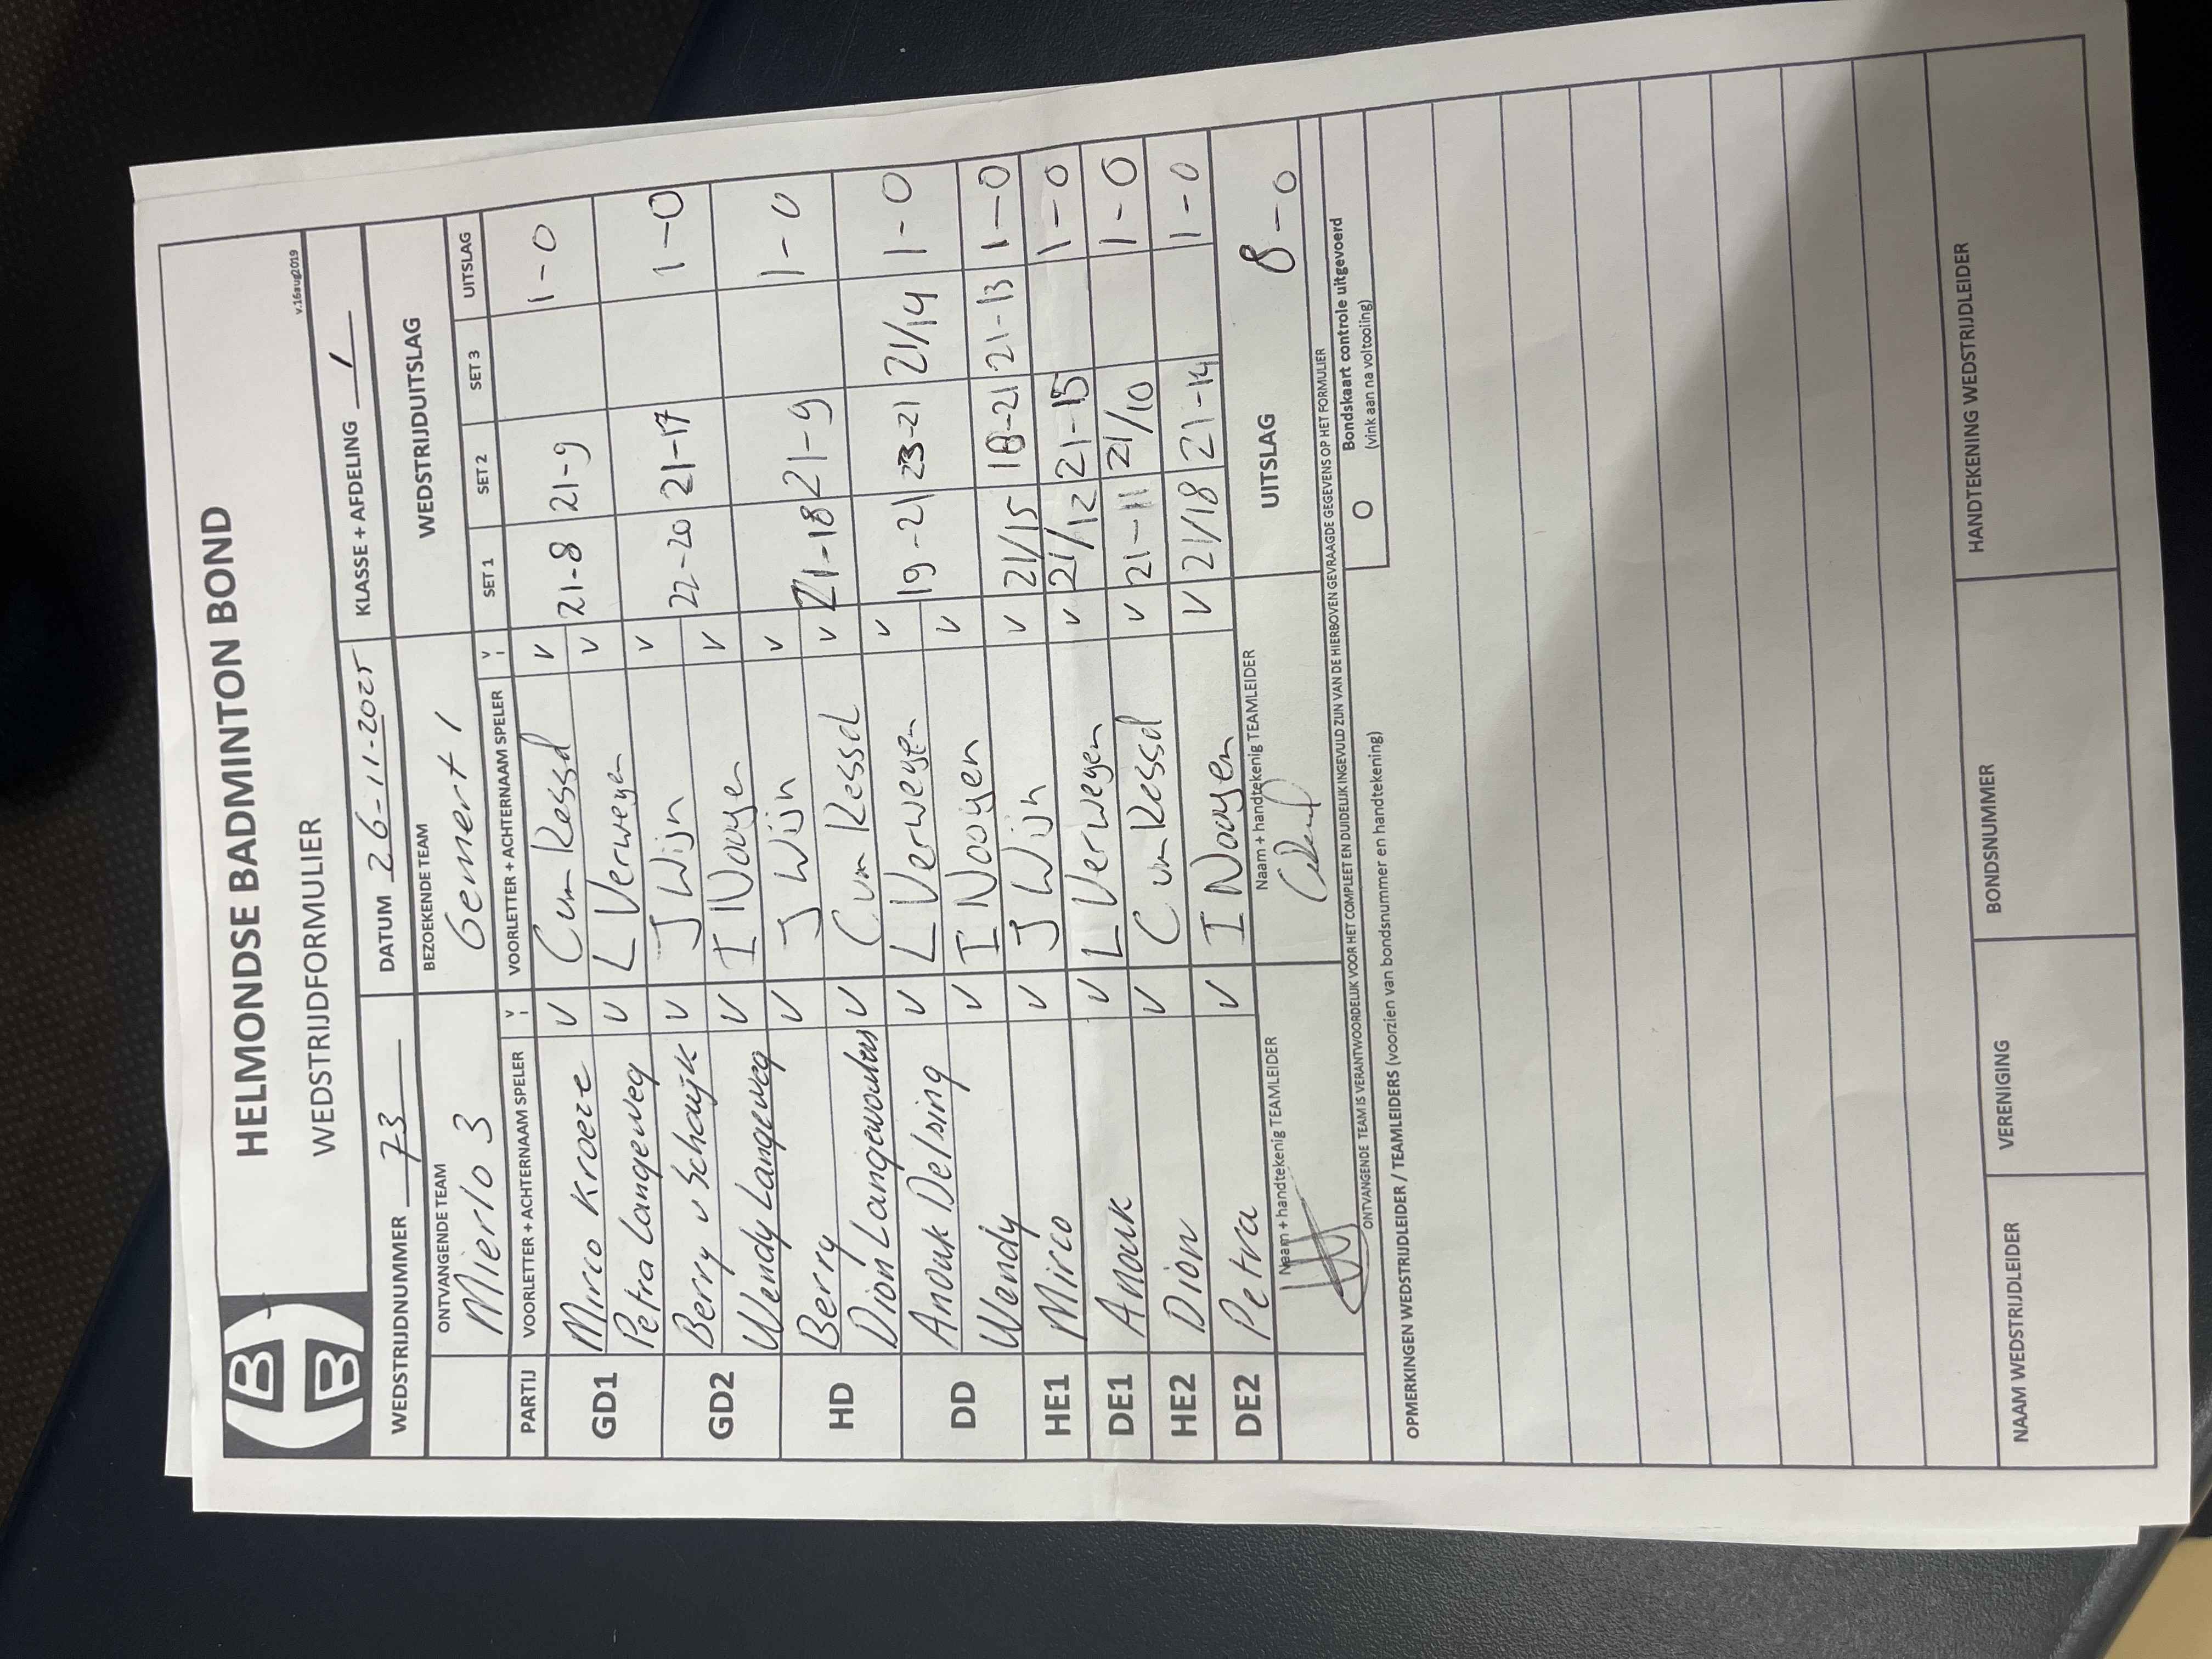 HELMONDSE BADMINTON BOND
WEDSTRIJDFORMULIER
v.16aug2019
WEDSTRIJDNUMMER 73 DATUM 26-11-2025 KLASSE + AFDELING 1
ONTVANGENDE TEAM BEZOEKENDE TEAM WEDSTRIJDUITSLAG
Mierlo 3 Gemert 1
PARTIJ VOORLETTER + ACHTERNAAM SPELER V VOORLETTER + ACHTERNAAM SPELER V SET 1 SET 2 SET 3 UITSLAG
GD1 Mirco Kroeze V C van Kessel V 21-8 21-9 1-0
Petra Langeweg V L Verweyen V
GD2 Berry v Schaijk V J Wijn V 22-20 21-17 1-0
Wendy Langeweg V I Nooyen V
HD Berry V J Wijn V 21-18 21-9 1-0
Dion V C van Kessel V
DD Anouk Delsing V L Verweyen V 19-21 23-21 21/14 1-0
Wendy V I Nooyen V
HE1 Mirco V J Wijn V 21/15 18-21 21-13 1-0
DE1 Anouk V L Verweyen V 21/12 21-15 1-0
HE2 Dion V C van Kessel V 21-11 21/10 1-0
DE2 Petra V I Nooyen V 21/18 21-14 1-0
Naam + handtekenig TEAMLEIDER Naam + handtekenig TEAMLEIDER UITSLAG 8-0
ONTVANGENDE TEAM IS VERANTWOORDELIJK VOOR HET COMPLEET EN DUIDELIJK INGEVULD ZIJN VAN DE HIERBOVEN GEVRAAGDE GEGEVENS OP HET FORMULIER
OPMERKINGEN WEDSTRIJDLEIDER / TEAMLEIDERS (voorzien van bondsnummer en handtekening)
O Bondskaart controle uitgevoerd
(vink aan na voltooiing)
NAAM WEDSTRIJDLEIDER VERENIGING BONDSNUMMER HANDTEKENING WEDSTRIJDLEIDER